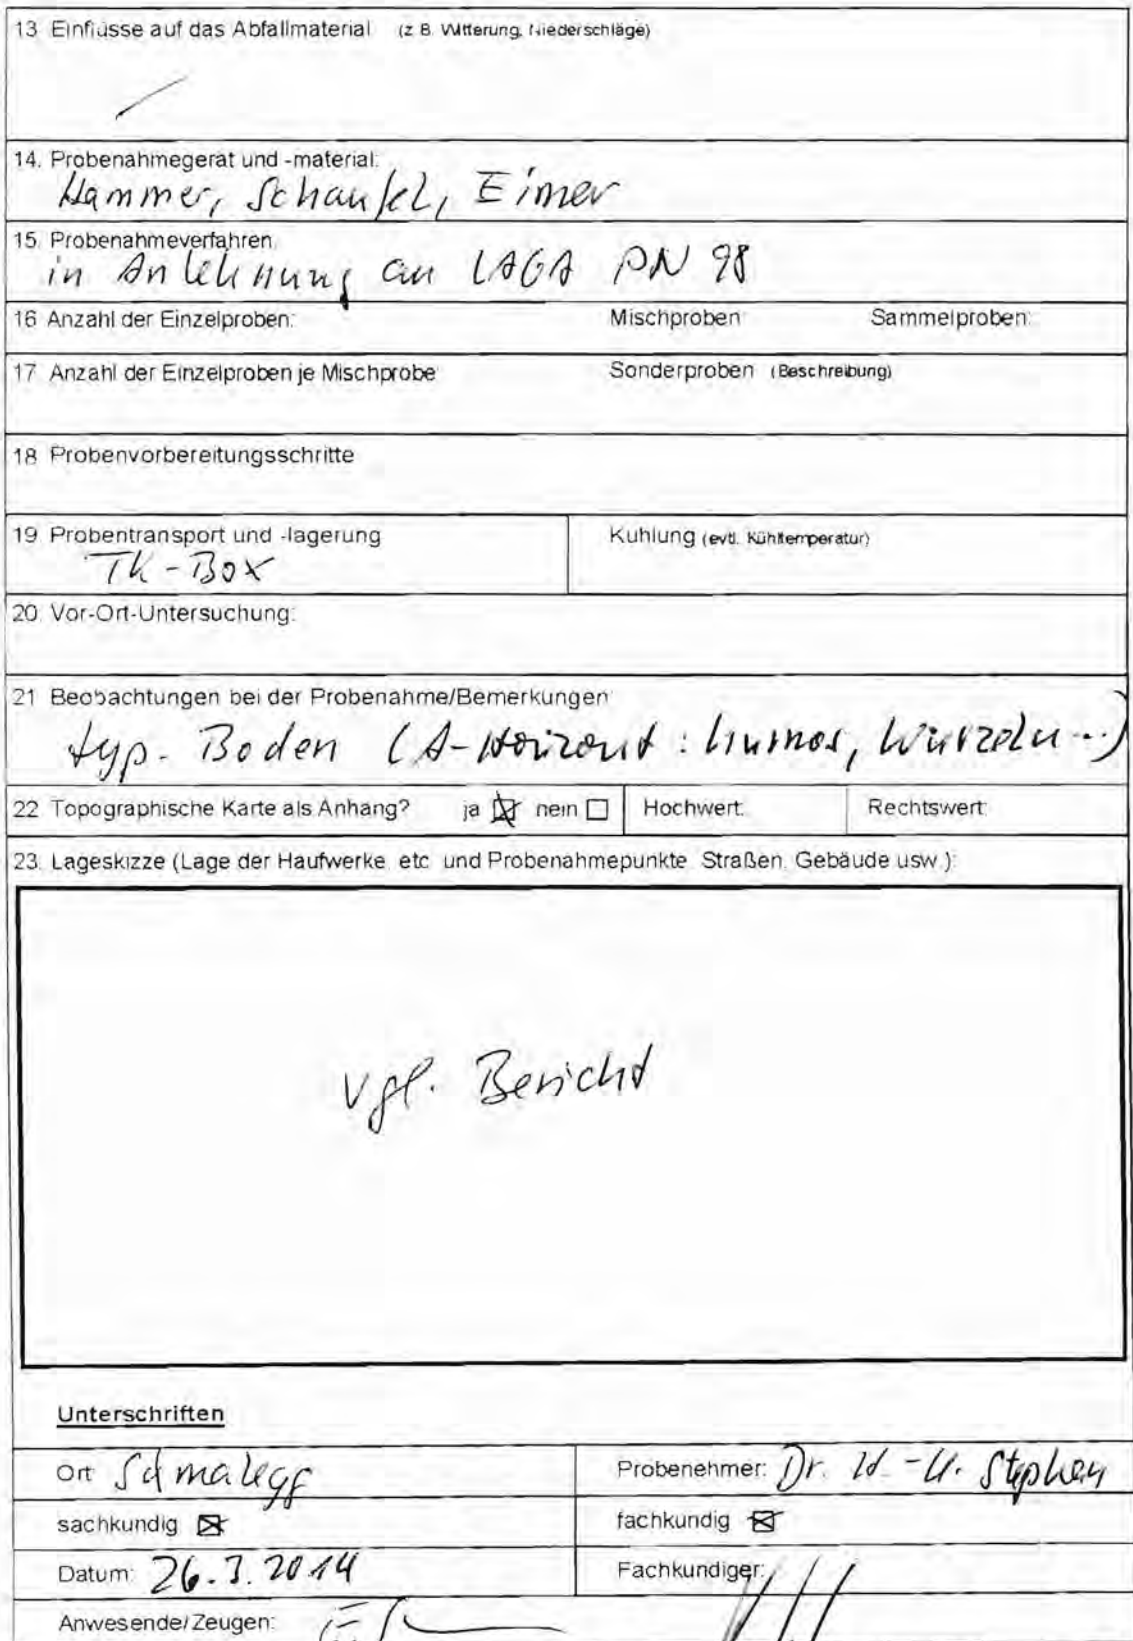 13 Einflüsse auf das Abfallmaterial (z. B. Witterung, Niederschläge)
14. Probenahmegerät und -material:
Hammer, Schaufel, Eimer
15. Probenahmeverfahren
in Anlehnung an LAGA PN 98
16 Anzahl der Einzelproben: Mischproben Sammelproben:
17 Anzahl der Einzelproben je Mischprobe Sonderproben (Beschreibung)
18 Probenvorbereitungsschritte
19 Probentransport und -lagerung Kühlung (evtl. Kühltemperatur)
TK-Box
20. Vor-Ort-Untersuchung:
21 Beobachtungen bei der Probenahme/Bemerkungen
typ. Boden (A-Horizont: humos, Wurzeln...)
22 Topographische Karte als Anhang? ja ☒ nein ☐ Hochwert: Rechtswert
23. Lageskizze (Lage der Haufwerke etc und Probenahmepunkte Straßen, Gebäude usw.):
vgl. Bericht
Unterschriften
Ort Schmalegg Probenehmer: Dr. H.-U. Stephan
sachkundig ☒ fachkundig ☒
Datum: 26.3.2014 Fachkundiger:
Anwesende/Zeugen: